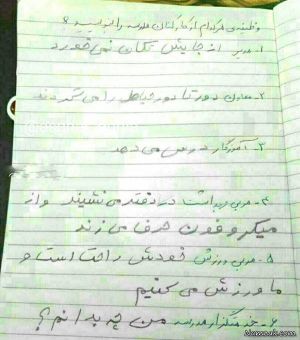 وظیفه‌ی هرکدام از کارکنان مدرسه را بنویسید؟
۱- مدیر از جایش تکان نمی خورد
۲- معاون دور تا دور حیاط را می گردد
۳- آموزگار درس می دهد
۴- مربی بهداشت در دفتر می نشیند و از
میکروفون حرف می زند
۵- مربی ورزش خودش راحت است و
ما ورزش می کنیم
۶- خدمتگزار مدرسه من چه بدانم؟